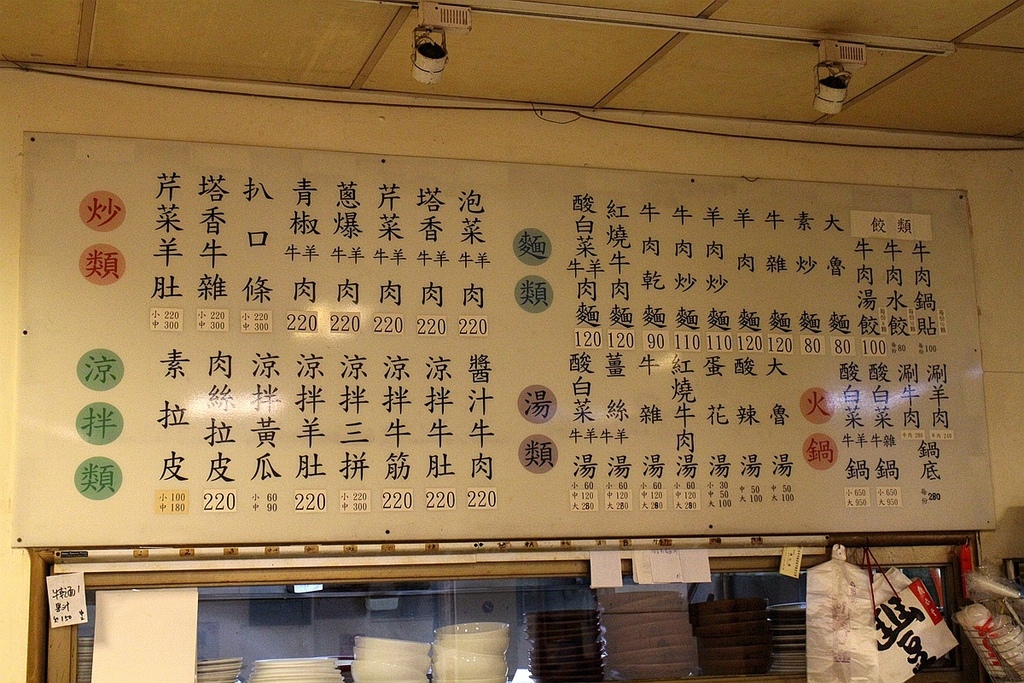 炒類
芹菜羊肚 小220 中300
塔香牛雜 小220 中300
扒口條 小220 中300
青椒牛羊肉 220
蔥爆牛羊肉 220
芹菜牛羊肉 220
塔香牛羊肉 220
泡菜牛羊肉 220
涼拌類
素拉皮 小100 中180
肉絲拉皮 220
涼拌黃瓜 小60 中90
涼拌羊肚 220
涼拌三拼 小220 中300
涼拌牛筋 220
涼拌牛肚 220
醬汁牛肉 220
麵類
酸白菜牛羊肉麵 120
紅燒牛肉麵 120
牛肉乾麵 90
牛肉炒麵 110
羊肉炒麵 110
羊肉麵 120
牛雜麵 120
素炒麵 80
大魯麵 80
餃類
牛肉湯餃 100
牛肉水餃 每份80
牛肉鍋貼 每份100
湯類
酸白菜牛羊湯 小60 中120 大280
薑絲牛羊湯 小60 中120 大280
牛雜湯 小60 中120 大280
紅燒牛肉湯 小60 中120 大280
蛋花湯 小30 中50 大100
酸辣湯 中50 大100
大魯湯 中50 大100
火鍋
酸白菜牛羊鍋 小650 大950
酸白菜牛雜鍋 小650 大950
涮牛肉
涮羊肉
鍋底 每份280